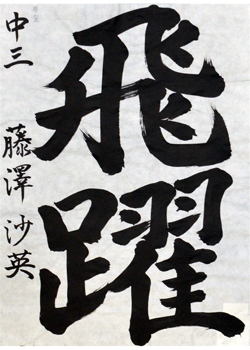 飛躍
中三 藤澤沙英